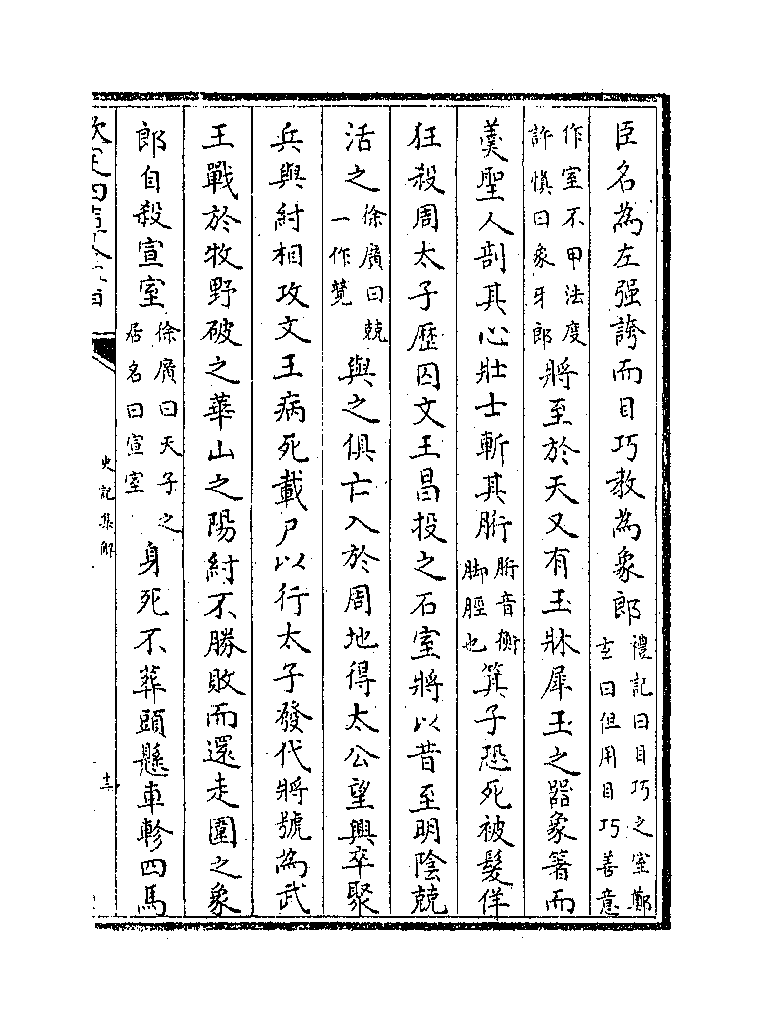 臣名為左强誇而目巧教為象郎禮記曰目巧之室鄭玄曰但用目巧善意
作室不甲法度許慎曰象牙郎將至於天又有玉牀犀玉之器象箸而
羹聖人剖其心壯士斬其胻胻音衡脚脛也箕子恐死被髮佯
狂殺周太子歷囚文王昌投之石室將以昔至明陰兢
活之徐廣曰兢一作竸與之俱亡入於周地得太公望興卒聚
兵與紂相攻文王病死載尸以行太子發代將號為武
王戰於牧野破之華山之陽紂不勝敗而還走圍之象
郎自殺宣室徐廣曰天子之居名曰宣室身死不葬頭懸車軫四馬
史記集解